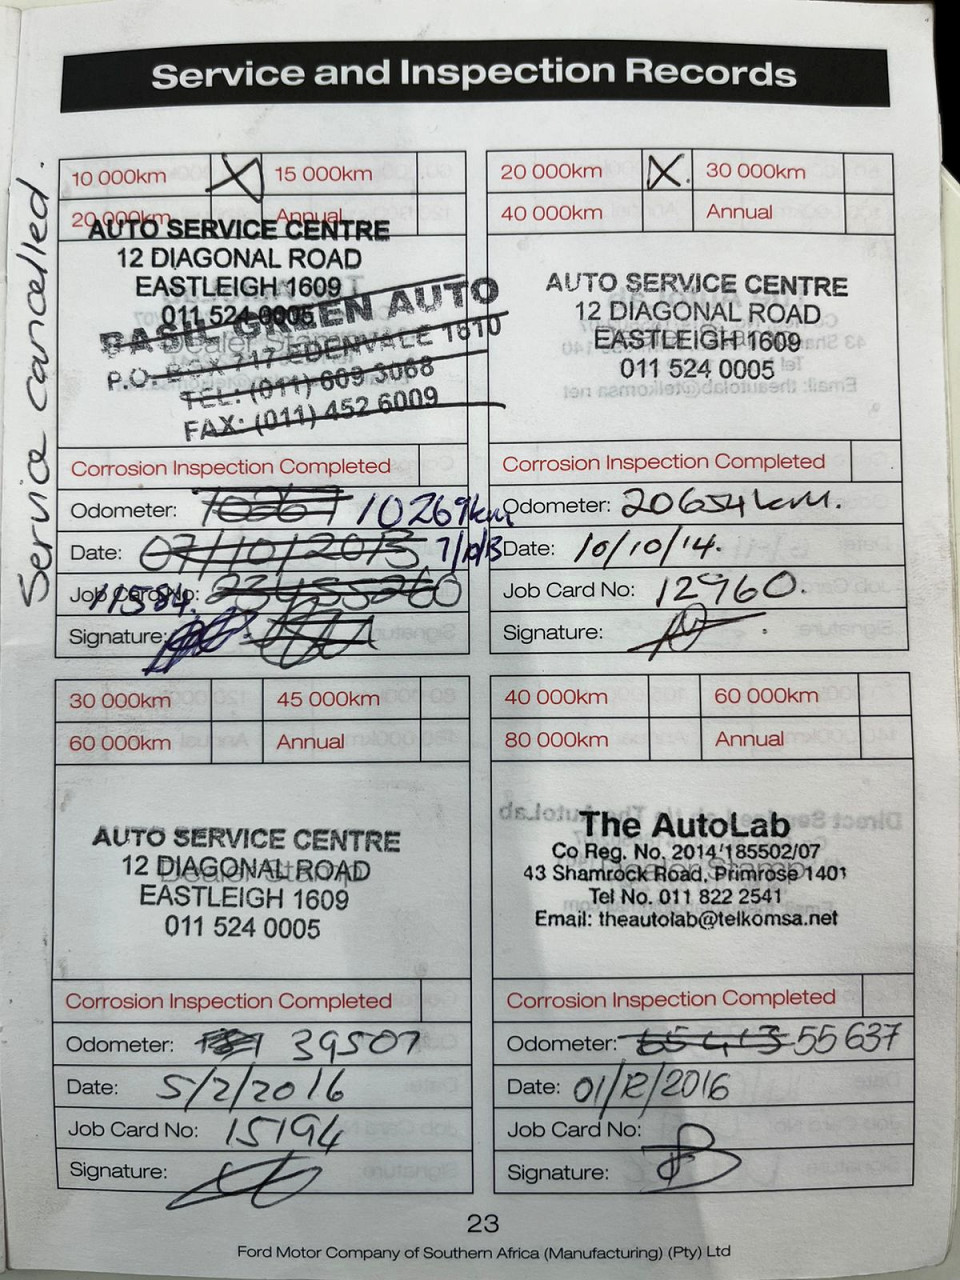 Service and Inspection Records
Service cancelled.
10 000km X 15 000km
20 000km Annual
AUTO SERVICE CENTRE
12 DIAGONAL ROAD
EASTLEIGH 1609
011 524 0005
BASIL GREEN AUTO
P.O. BOX 717 EDENVALE 1610
TEL: (011) 609 3068
FAX: (011) 452 6009
Corrosion Inspection Completed
Odometer: 10269km
Date: 07/10/2013 7/10/13
Job Card No: 11584.
Signature:
20 000km X. 30 000km
40 000km Annual
AUTO SERVICE CENTRE
12 DIAGONAL ROAD
EASTLEIGH 1609
011 524 0005
Corrosion Inspection Completed
Odometer: 20654km.
Date: 10/10/14.
Job Card No: 12960.
Signature:
30 000km 45 000km
60 000km Annual
AUTO SERVICE CENTRE
12 DIAGONAL ROAD
EASTLEIGH 1609
011 524 0005
Corrosion Inspection Completed
Odometer: 39507
Date: 5/2/2016
Job Card No: 15194
Signature:
40 000km 60 000km
80 000km Annual
The AutoLab
Co Reg. No. 2014/185502/07
43 Shamrock Road, Primrose 1401
Tel No. 011 822 2541
Email: theautolab@telkomsa.net
Corrosion Inspection Completed
Odometer: 65 413 55 637
Date: 01/12/2016
Job Card No:
Signature:
23
Ford Motor Company of Southern Africa (Manufacturing) (Pty) Ltd